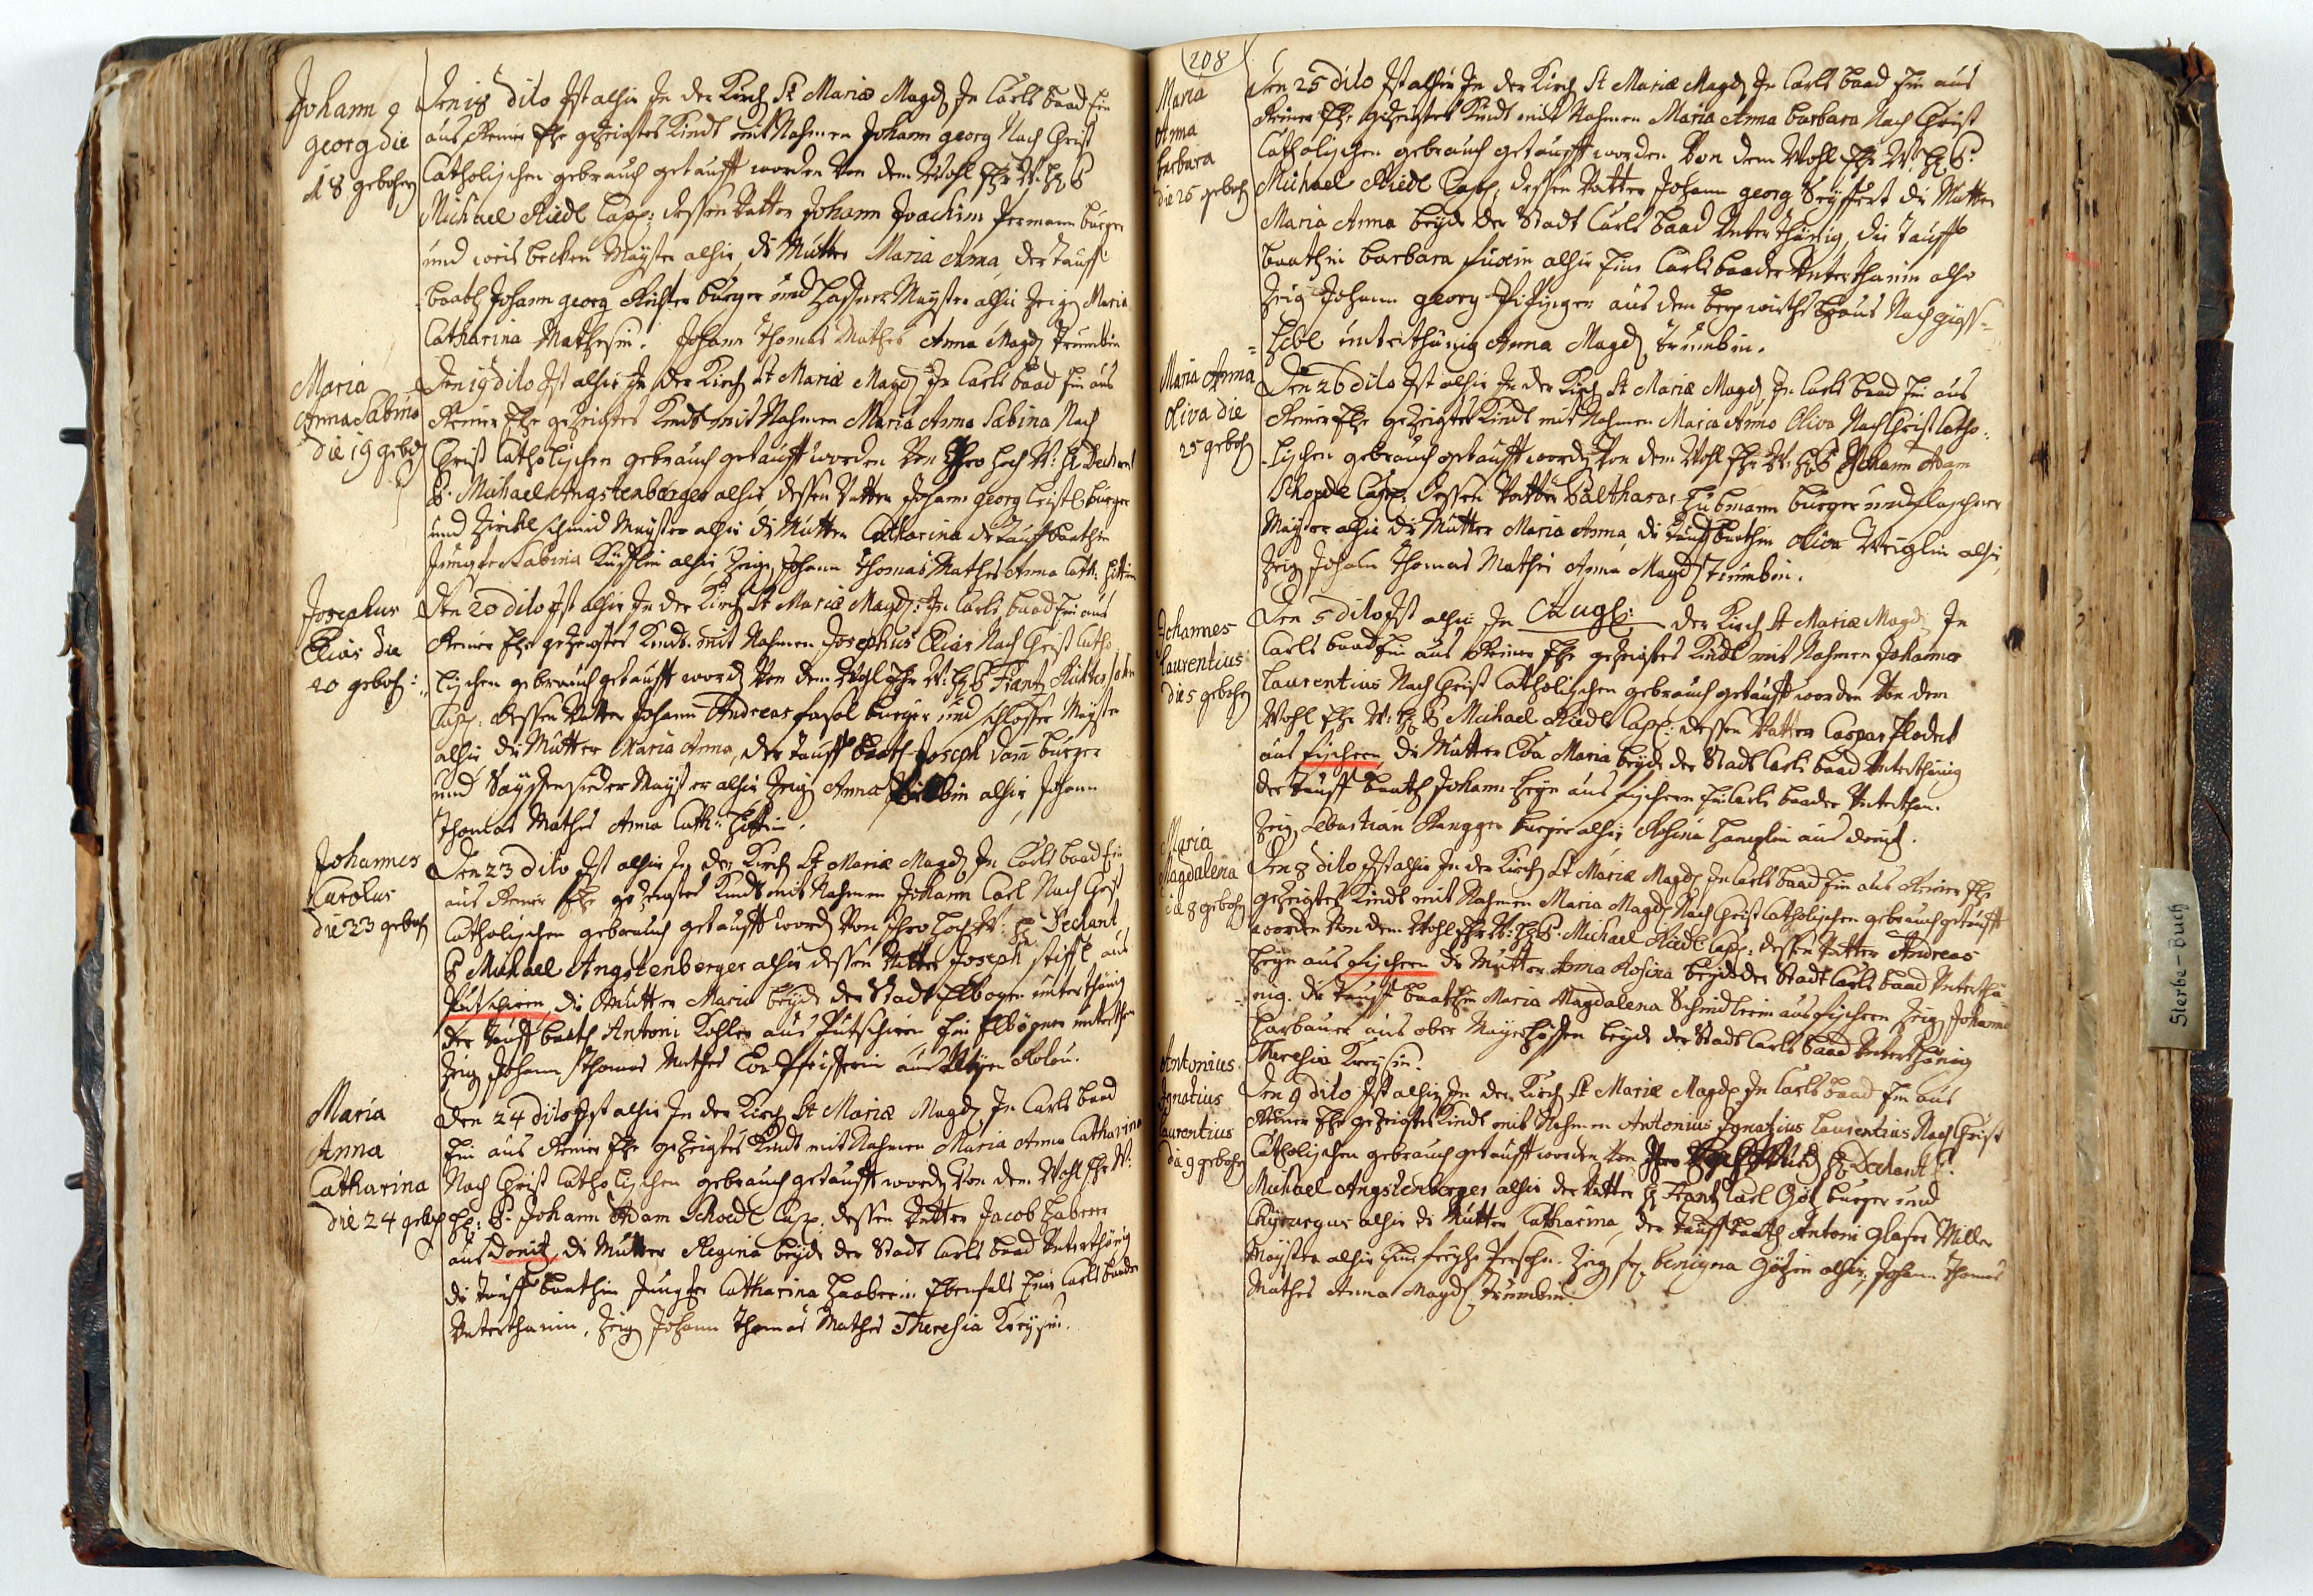 Johann
georg die
18 gebohrn
Den 18 dito Ist alhir In der Kirch St Mariæ Magd In Carls baad Ein
aus Reiner Ehe gezeigtes Kindt mit Nahmen Johann georg Nach Christ
Catholischen gebrauch getaufft worden Von dem Wohl Ehr W: H P
Michael Riedl Capp: dessen Vatter Johann Joachim Permann burger
und weis becken Mayster alhir, di Mutter Maria Anna, der tauff
baath Johann georg Richter burger und Haffner Mayster alhir Zeig Maria
Catharina Mathesin. Johann Thomas Mathes Anna Magd Trumbin
Maria
Anna Sabina
die 19 geboh
Den 19 dito Ist alhir In der Kirch St Mariæ Magd In Carls baad Ein aus
Reiner Ehe gezeigtes Kindt mit Nahmen Maria Anna Sabina Nach
Christ Catholischen gebrauch getaufft worden Von Ihro Hoch W: H Dechant
P. Michael Angstenberger alhir, dessen Vatter Johann georg burger
und Zirckl schmid Mayster alhir di Mutter Catharina di tauff baathin
Jungfer Sabina alhir, Zeig Johann Thomas Mathes Anna Cath:
Josephus
Elias die
20 geboh:
Den 20 dito Ist alhir In der Kirch St Mariæ Magd: In Carls baad Ein aus
Reiner Ehe gezeigtes Kindt mit Nahmen Josephus Elias Nach Christ Catho
lischen gebrauch getaufft word Von dem Wohl Ehr W: H P Frantz
Capp: dessen Vatter Johann Andreas fasol burger und schlosser Mayster
alhir di Mutter Maria Anna, der tauff baath Joseph Damm burger
und Sayffensieder Mayster alhir Zeig Anna alhir, Johann
Thomas Mathes Anna Cath:
Johannes
Carolus
die 23 geboh
Den 23 dito Ist alhir In der Kirch St Mariæ Magd In Carls baad Ein
aus Reiner Ehe gezeigtes Kindt mit Nahmen Johann Carl Nach Christ
Catholischen gebrauch getaufft word Von Ihro Hoch W: H Dechant
P Michael Angstenberger alhir dessen Vatter Joseph stiffl aus
Putschiren, di Mutter Maria beyde der Stadt Elbogen unterthänig
der tauff baath Antoni Kohler aus Putschiren Ein Elbogner unterthan
Zeig Johann Thomas Mathes Eva Pfeifferin aus Alten Rolau.
Maria
Anna
Catharina
die 24 geboh
Den 24 dito Ist alhir In der Kirch St Mariæ Magd In Carls baad
Ein aus Reiner Ehe gezeigtes Kindt mit Nahmen Maria Anna Catharina
Nach Christ Catholischen gebrauch getaufft word Von dem Wohl Ehr W:
H: P. Johann Adam Schoedl Capp. dessen Vatter Jacob Haberer
aus Donitz, di Mutter Regina beyde der Stadt Carls baad Unterthänig
di tauff baathin Jungfer Catharina Haaberin Ebenfals Eine Carlsbaader
Unterthanin, Zeig Johann Thomas Mathes Theresia Kreysin.
208
Maria
Anna
barbara
die 25 geboh
Den 25 dito Ist alhir In der Kirch St Mariæ Magd In Carls baad Ein aus
Reiner Ehe gezeigtes Kindt mit Nahmen Maria Anna barbara Nach Christ
Catholischen gebrauch getaufft worden Von dem Wohl Ehr W: H P.
Michael Riedl Capp, dessen Vatter Johann georg Seyffert di Mutter
Maria Anna beyde der Stadt Carls baad Unterthänig, die tauff
baathin barbara fuxin alhir Eine Carlsbaader Unterthanin alhir
Zeig Johann georg aus dem wirths haus Nach gies=
=hibl unterthänig Anna Magd Trumbin.
Maria Anna
Oliva die
25 geboh
Den 26 dito Ist alhir In der Kirch St Mariæ Magd In Carls baad Ein aus
Reiner Ehe gezeigtes Kindt mit Nahmen Maria Anna Oliva Nach Christ Catho:
lischen gebrauch getaufft word Von dem Wohl Ehr W: H P Johann Adam
Schoedl Capp, dessen Vatter Balthasar Hubmann burger und flaschner
Mayster alhir di Mutter Maria Anna, di tauff baathin Oliva Weiglin alhir
Zeig Johann Thomas Mathes Anna Magd Trumbin.
Johannes
Laurentius
die 5 gebohrn
Den 5 dito Ist alhir In Augl: der Kirch St Mariæ Magd In
Carls baad Ein aus Reiner Ehe gezeigtes Kindt mit Nahmen Johannes
Laurentius Nach Christ Catholischen gebrauch getaufft worden Von dem
Wohl Ehr W: H P Michael Riedl Capp: dessen Vatter Caspar Plodert
aus fischern, di Mutter Eva Maria beyde der Stadt Carls baad Unterthänig
der tauff baath Johann Heyn aus fischern Ein Carls baader Unterthan.
Zeig Sebastian Rangger burger alhir Rosina aus Donitz.
Maria
Magdalena
die 8 gebohrn
Den 8 dito Ist alhir In der Kirch St Mariæ Magd In Carls baad Ein aus Reiner Ehe
gezeigtes Kindt mit Nahmen Maria Magd Nach Christ Catholischen gebrauch getaufft
worden Von dem Wohl Ehr W: H P. Michael Riedl Capp: dessen Vatter Andreas
Heyn aus fischern di Mutter Anna Rosina beyde der Stadt Carls baad Unterthä=
nig. di tauff baathin Maria Magdalena Schindlerin aus fischern Zeig Johann
Harbauer aus ober Mayerhöffen beyde der Stadt Carls baad Unterthänig
Theresia Kreysin.
Antonius
Ignatius
Laurentius
die 9 gebohrn
Den 9 dito Ist alhir In der Kirch St Mariæ Magd In Carls baad Ein aus
Reiner Ehe gezeigtes Kindt mit Nahmen Antonius Ignatius Laurentius Nach Christ
Catholischen gebrauch getaufft worden Von Ihro H Dechant P.
Michael Angstenberger alhir der Vatter H Frantz Carl Götz burger und
Chyrurgus alhir di Mutter Catharina, der tauff baath Antoni glaser Miller
Mayster alhir Zeig benigna Götzin alhir, Johann Thomas
Mathes Anna Magd Trumbin.
Sterbe-Buch